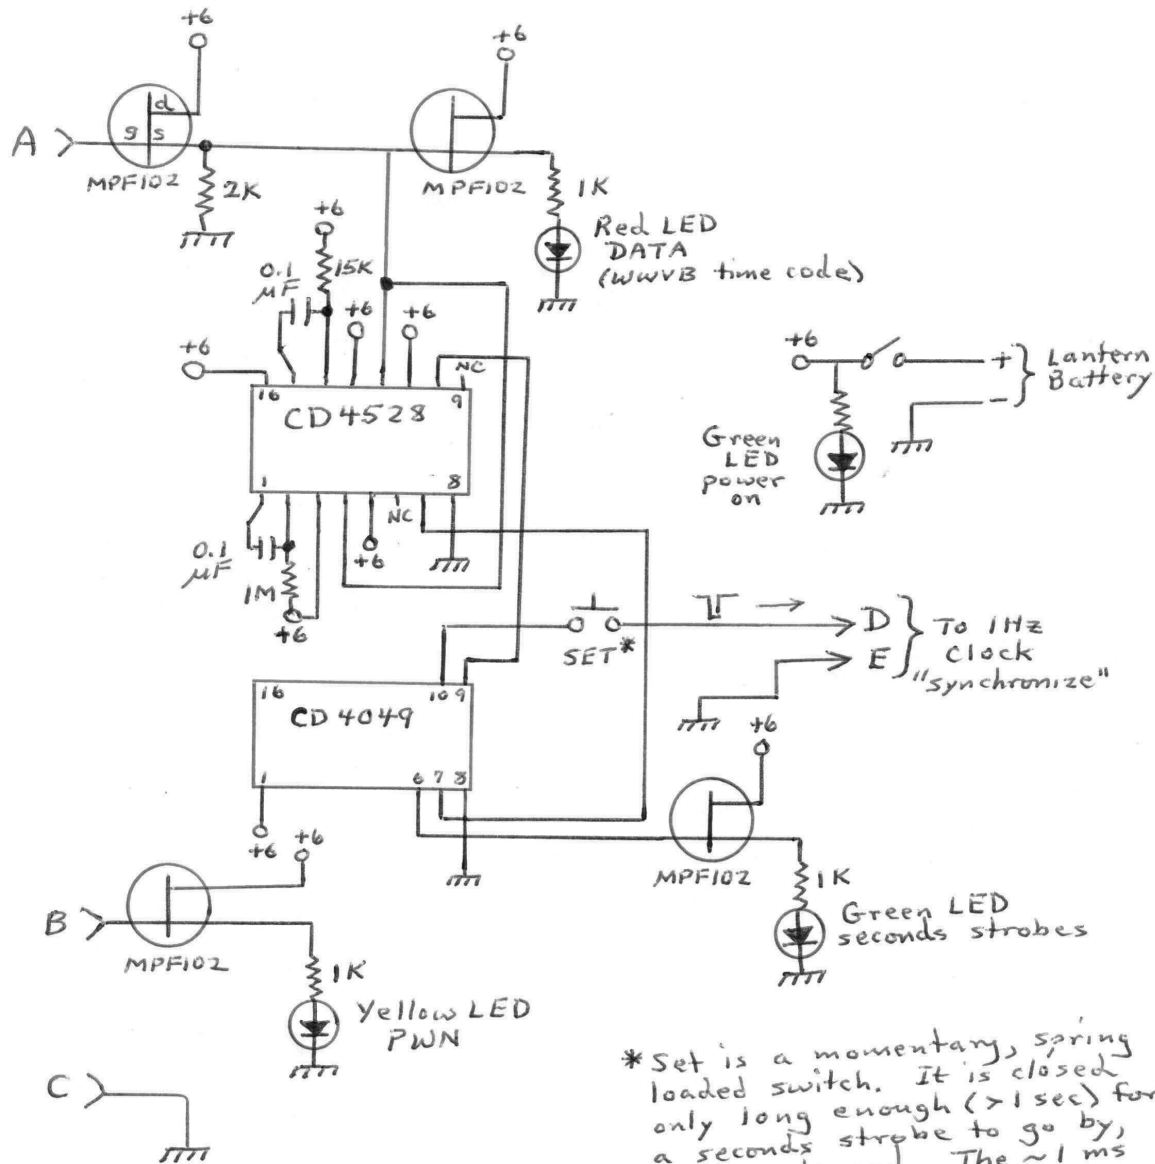 +6
+6
A
d
g s
MPF102
MPF102
2K
1K
+6
15K
Red LED
DATA
(WWVB time code)
0.1
µF
+6
+6
+6
NC
16
9
CD4528
1
8
+6
+
Lantern
Battery
-
Green
LED
power
on
NC
+6
0.1
µF
1M
+6
SET*
D
E
To 1Hz
Clock
"synchronize"
16
10 9
CD4049
1
6 7 8
+6
+6
+6
MPF102
1K
Green LED
seconds strobes
B
MPF102
1K
Yellow LED
PWN
C
* Set is a momentary, spring
loaded switch. It is closed
only long enough (>1 sec) for
a seconds strobe to go by,
The ~1 ms